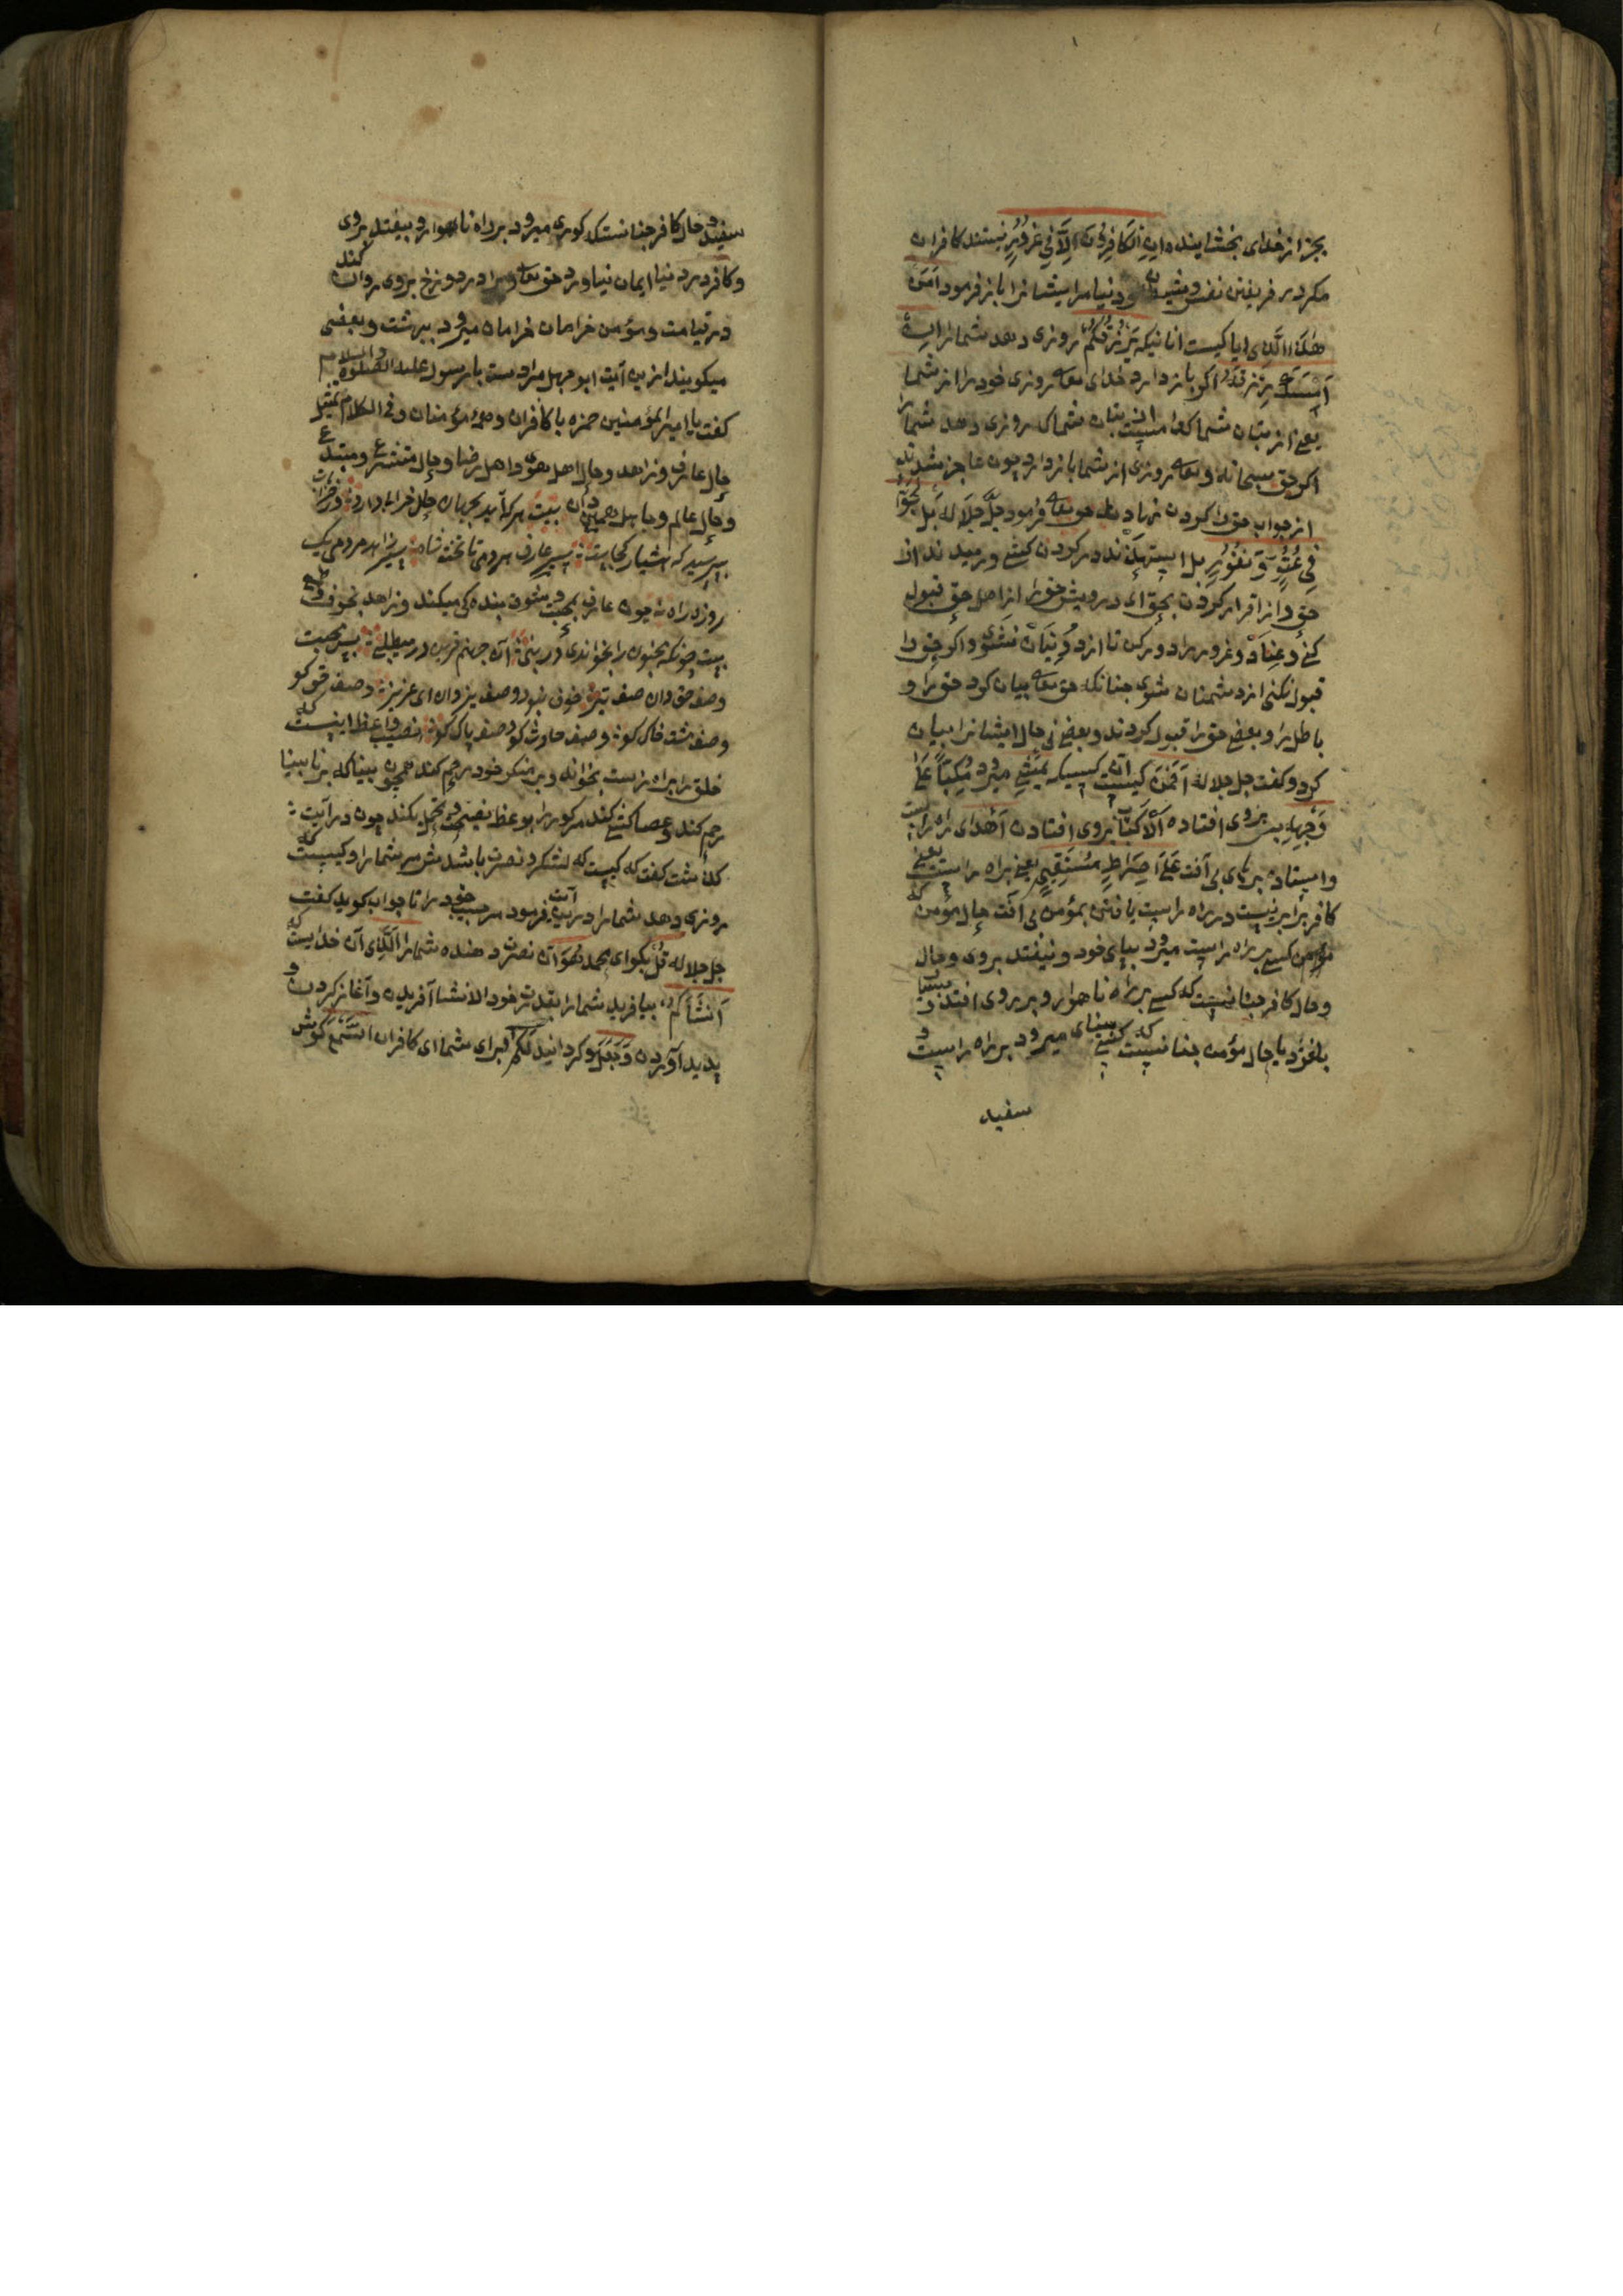 بجز از خدای بخشاینده اِنِ الْکَافِرُونَ اِلَّا فِی غُرُورٍ نیستند کافران
مکر در فریفتن نفس و شیطان و دنیا مر ایشانرا باز فرمود اَمَّنْ
هٰذَا الَّذِی ایا کیست انانیکه یَرْزُقُکُمْ روزی دهد شمارا اِنْ
اَمْسَکَ رِزْقَهُ اکر باز دارد خدای تعالی روزی خود را از شما
یعنی از بتان شما کدام است از بتان شما که روزی دهد شما را
اکر حق سبحانه و تعالی روزی از شما باز دارد چون عاجز شدند
از جواب حق را کردن نهادند حق تعالی فرمود جَلَّ جَلَالَهُ بَلْ لَجُّوا
فِی عُتُوٍّ وَ نُفُورٍ بل استهیدند در کردن کشی و رمیدند از
حق و از اقرار کردن بحق ای درویش حق را از اهل حق قبول
کن و عِنَاد و غرور را دور کن تا از دُونِیَان نشوی و اکر حق را
قبول نکنی از دشمنان شوی چنانکه حق تعالی بیان کرد حق را و
باطل را و بعضی حق را قبول کردند و بعضی نی حال ایشانرا بیان
کرد و کفت جل جلاله اَفَمَنْ کیست آن کسیکه یَمْشِی میرود مُکِبًّا عَلَی
وَجْهِهِ بر روی افتاده اَلْاِکْبَابُ بروی افتادن اَهْدَی راه راست
و ایستاده بر پای بی آفت عَلَی صِرَاطٍ مُسْتَقِیمٍ یعنی براه راست یعنی
کافر برابر نیست در راه راست یافتن بمؤمن بی آفت حال مؤمن که
مؤمن کسی بر راه راست میرود بپای خود و نیفتد بروی و حال
و حال کافر چنانست که کسی بر راه ناهموار و بر روی افتد و
بلغزد یا حال مؤمن چنانست که کسی بینای میرود بر راه راست و
سفید
سفید و حال کافر چنانست که کوری میرود بر راه ناهموار و بیفتد بروی
و کافر در دنیا ایمان نیاورد حق تعالی او را در دوزخ بروی روان کند
در قیامت و مؤمن خرامان خرامان میرود ببهشت و بعضی
میکویند از این آیت ابوجهل مرادست با رسول علیه الصلوة والسلام
کفت یا امیر المؤمنین حمزه با کافران و همه مؤمنان و فی الکلام تمثیل
حال عارف و زاهد و حال اهل هوی و اهل رضا و حال متشرع و مبتدع
و حال عالم و جاهل همین دان بیت هر که آید بجهان
بپرسید که هشیار کجاست سیر عارف هر دمی تا تخت شاه سیر زاهد هر دمی یک
روزه راه چون عارف بمحبت و بخوف بندکی میکند و زاهد بخوف و طمع
بیت چونکه یحبون را بخواندی در نبی آن پس محبت
وصف حق دان خوف نبود وصف یزدان ای عزیز وصف حق کو
وصف مشت خاک کو وصف حادث کو وصف پاک کو نصیب واعظ اینست که
خلق را براه راست بخواند و بر منکر خود رحم کند همچون بینا که بر نابینا
رحم کند و عصا کشی کند مر کور را بوعظ نصیحت تحمل بکند چون در آیت
کذشت کفت که کیست که لشکر نصرت باشدش مر شما را و کیست که
روزی دهد شما را در این آیت فرمود مر حبیب خود را تا جواب کوید کفت
جل جلاله قُلْ بکو ای محمد هُوَ آن نصرت دهنده شما را اَلَّذِی آن خداست که
اَنْشَأَکُمْ بیافرید شما را بقدرت خود الانشا آفریدن و آغاز کردن و
پدید آوردن وَجَعَلَ و کردانید لَکُمُ برای شما ای کافران السَّمْعَ کوش